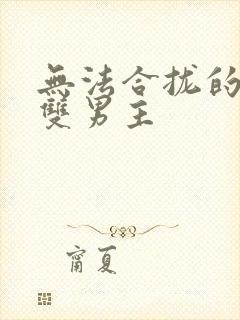 無法合拢的
雙男主
甯夏